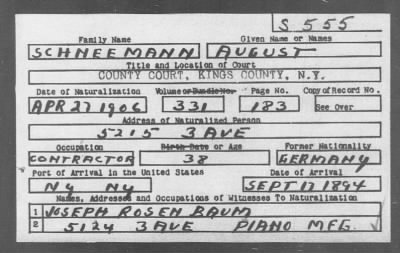 S 555
Family Name Given Name or Names
SCHNEEMANN AUGUST
Title and Location of Court
COUNTY COURT, KINGS COUNTY, N.Y.
Date of Naturalization Volume or Bundle No. Page No. Copy of Record No.
APR 27 1906 331 183 See Over
Address of Naturalized Person
5215 3 AVE
Occupation Birth Date or Age Former Nationality
CONTRACTOR 38 GERMANY
Port of Arrival in the United States Date of Arrival
NY NY SEPT 17 1894
Names, Addresses and Occupations of Witnesses To Naturalization
1 JOSEPH ROSEN BAUM
2 5124 3 AVE PIANO MFG.